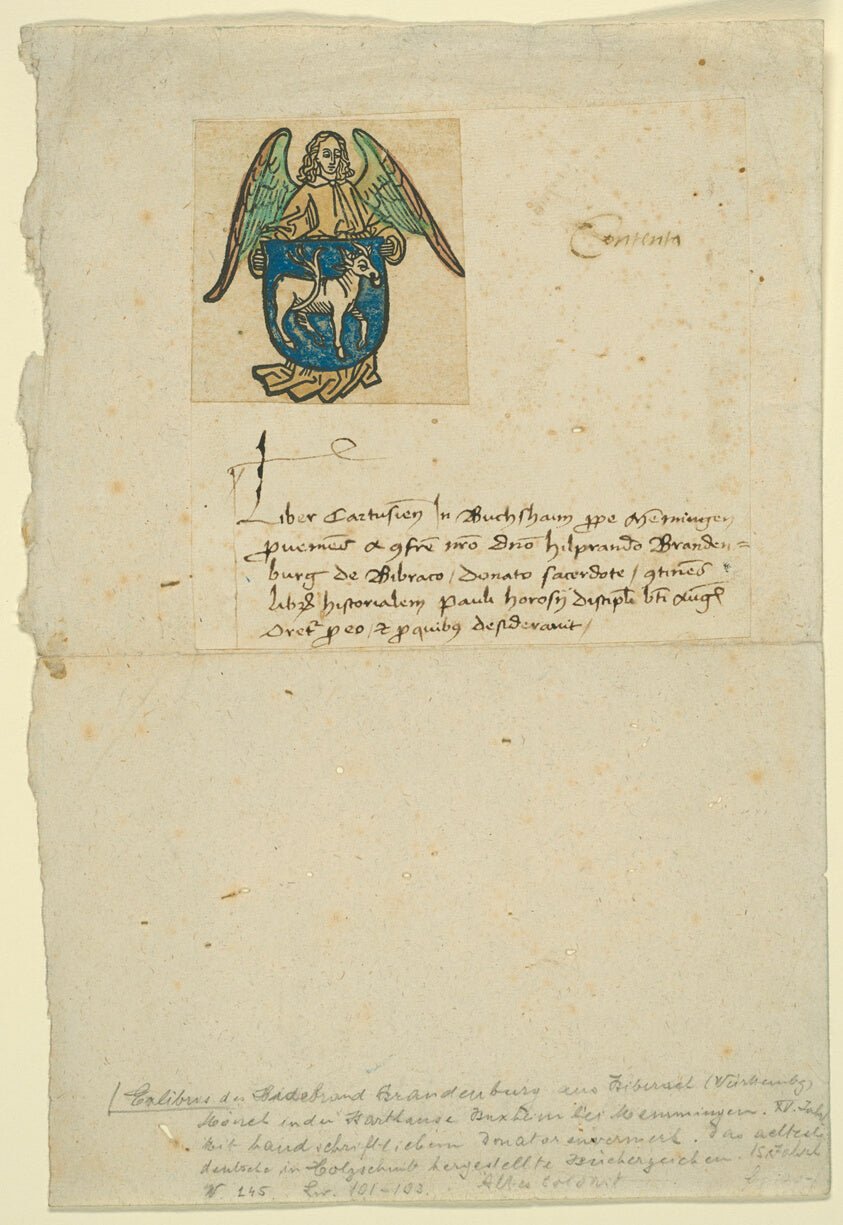 Contenta
Liber Cartusien̄ In Buchshaim ꝓpe Mēmingen
ꝓueniēs a ꝯfrē nr̄o Dn̄o hilprando Branden=
burg de Bibraco / Donato sacerdote / ꝯtinēs
libꝝ historialem Pauli horosij discipl̄i bt̄i Augl̄
Oret᷑ ꝓ eo / et ꝓ quibꝯ desiderauit /
Exlibris des Hildebrand Brandenburg aus Biberach (Württembg)
Mönch in der Karthause Buxheim bei Memmingen. XV. Jahr
Mit handschriftlichem Donatorenvermerk. Das aelteste
deutsche in Holzschnitt hergestellte Bücherzeichen. 15. Jahrh
W 245. Lw. 101-103. Altes Colorit